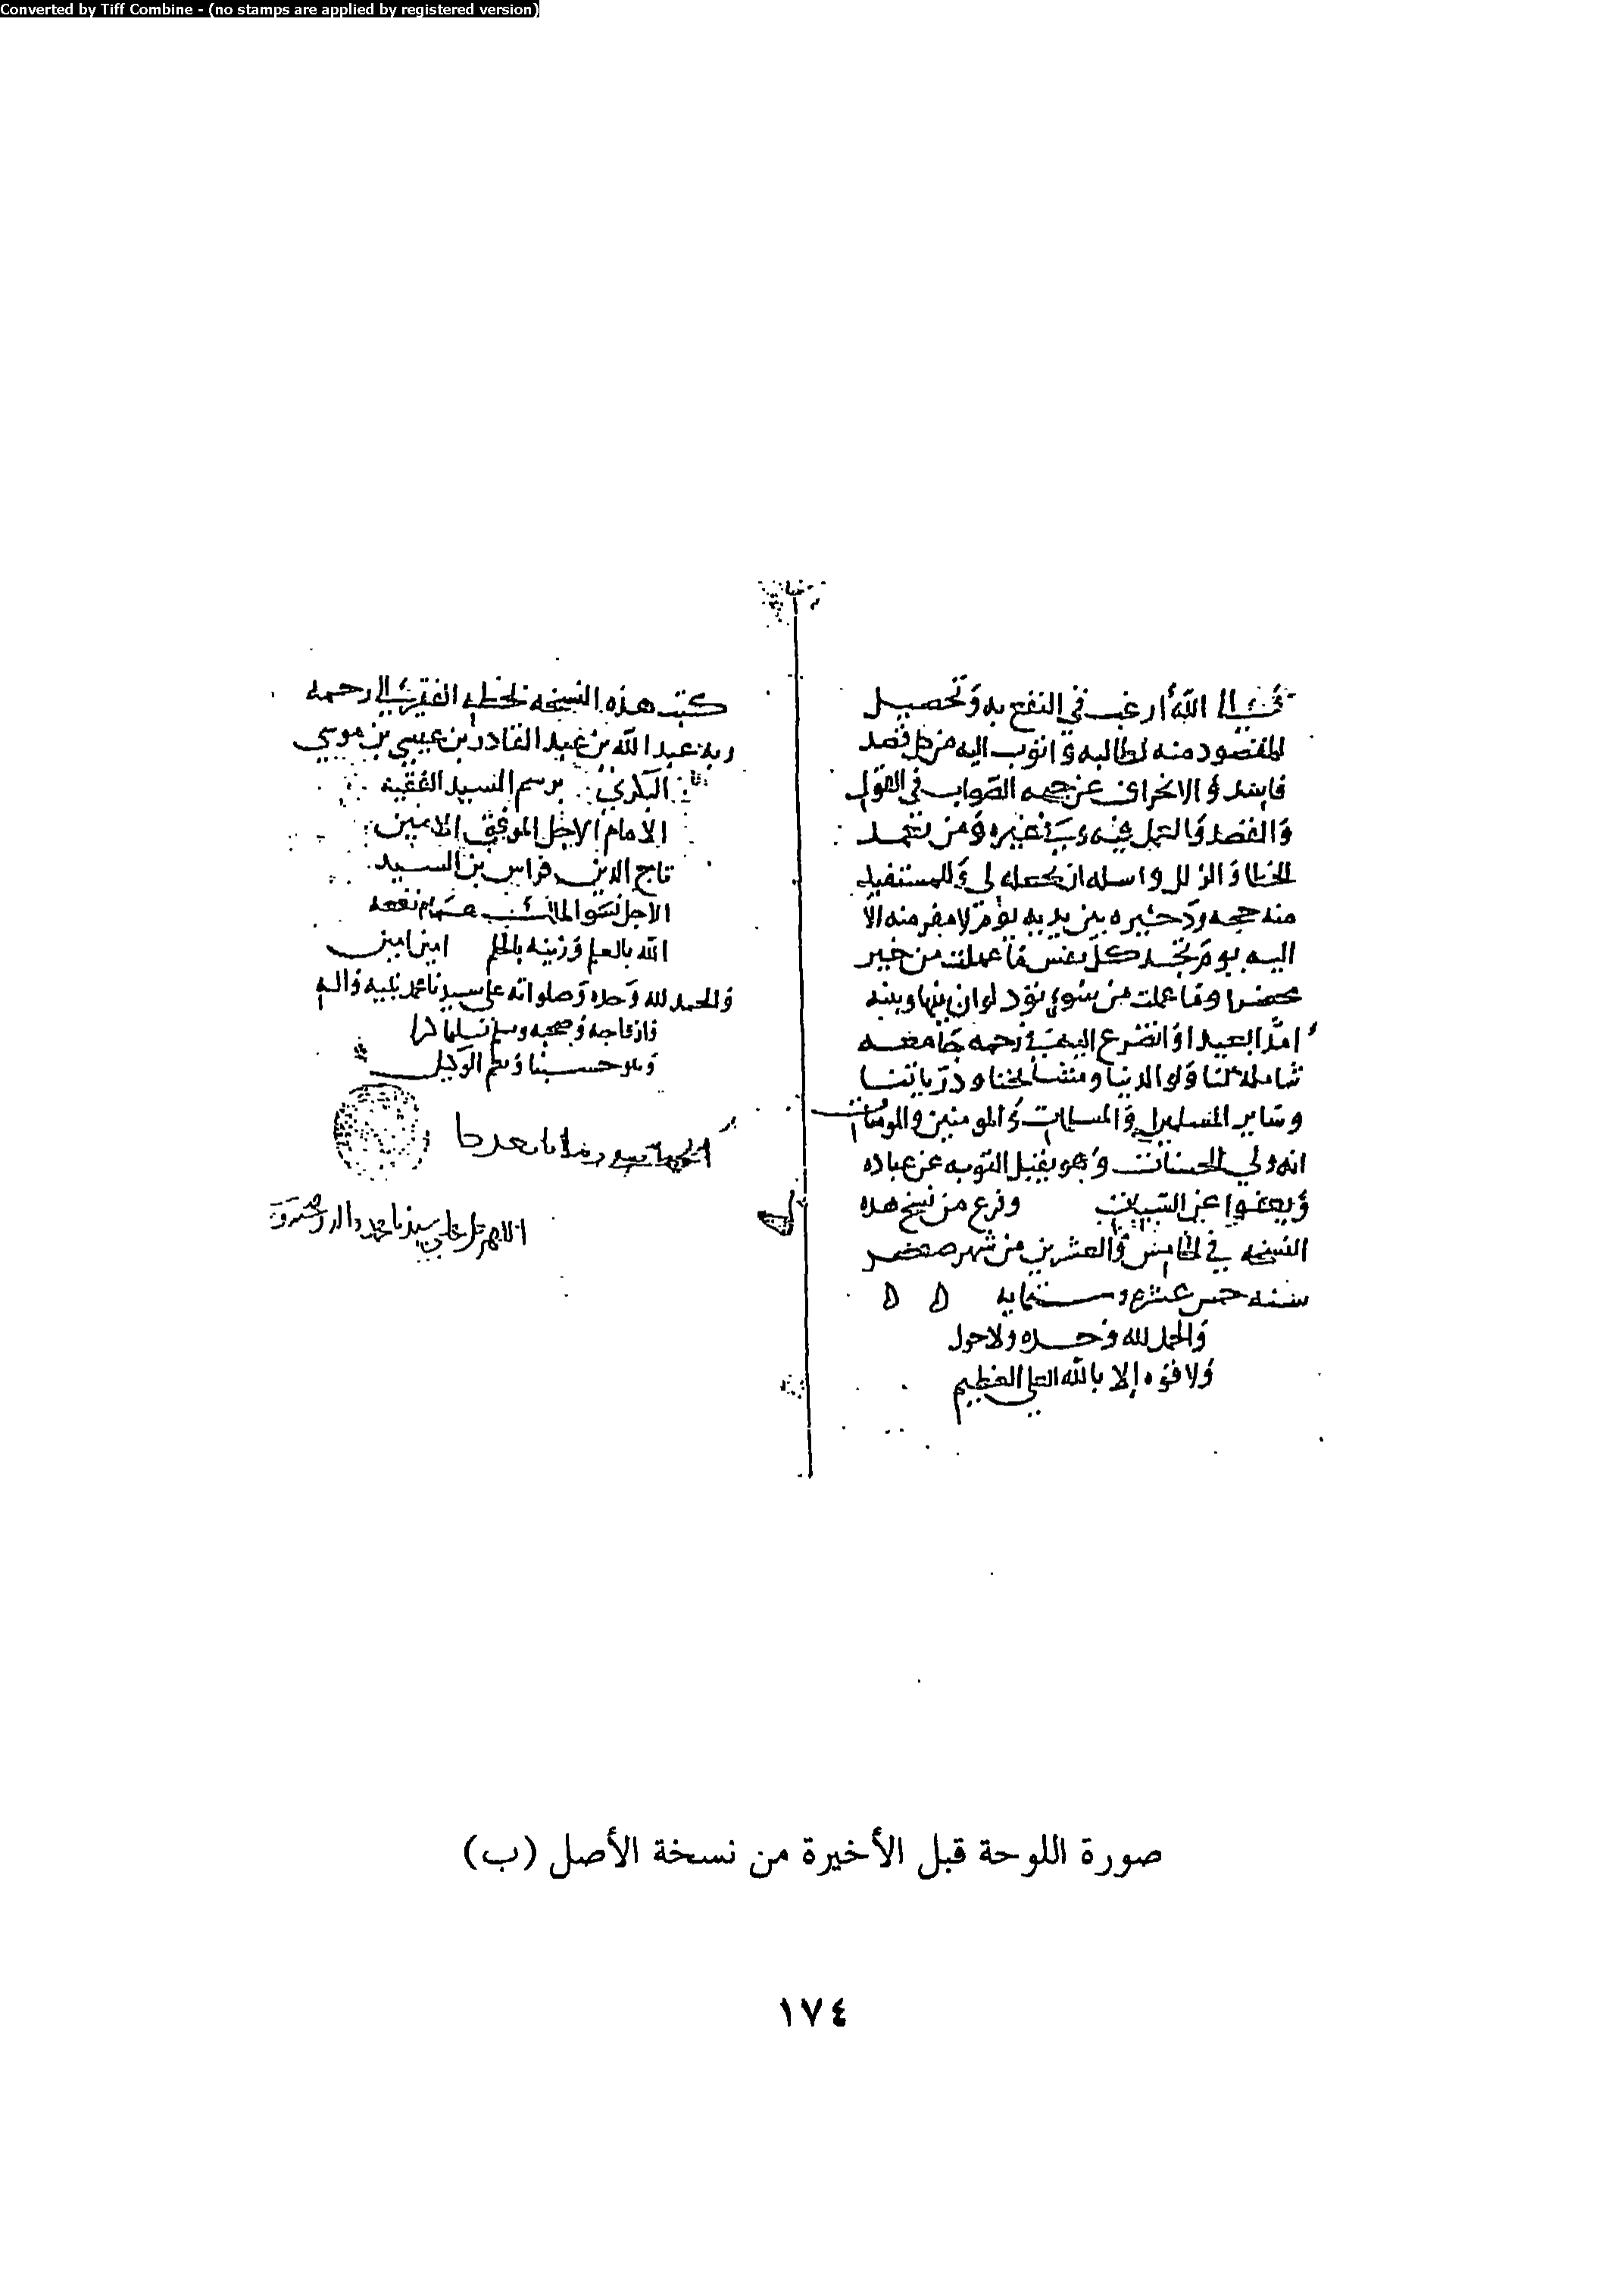 Converted by Tiff Combine - (no stamps are applied by registered version)
الله أرغب في النفع به وتحصيل
المقصود منه لطالبه واتوب اليه من كل قصد
فاسد والانحراف عن جهه الصواب في القول
والقصد والعمل فيه وفي غيره ومن تعمد
الخطا والزلل واسله ان يجعله لي وللمستفيد
منه حجه وذخيره بين يديه يوم لا مفر منه الا
اليه يوم تجد كل نفس ما عملت من خير
محضرا وما عملت من سوء تود لو ان بينها وبينه
امدا بعيدا واتضرع اليه في رحمه جامعه
شامله لنا ولوالدينا ومشايخنا وذرياتنا
وساير المسلمين والمسلمات والمومنين والمومنات
انه ولي الحسنات وهو يقبل التوبه عن عباده
ويعفوا عن السيات وفرغ من نسخ هذه
النسخه في الخامس والعشرين من شهر صفر
سنه خمس عشره وستمايه ه ه
والحمد لله وحده ولا حول
ولا قوه إلا بالله العلي العظيم
كتب هذه النسخه بخطه الفقير الى رحمه
ربه عبد الله بن عبد القادر بن عيسي بن موسي
البكري برسم السيد الفقيه
الامام الاجل الموفق الامين
تاج الدين فراس بن السيد
الاجل نشو الملك نفعه
الله بالعلم وزينه بالحلم امين امين
والحمد لله وحده وصلواته على سيدنا محمد نبيه واله
وازواجه وصحبه وسلم تسليما
وهو حسبنا ونعم الوكيل
اللهم صل على سيدنا محمد واله وصحبه
صورة اللوحة قبل الأخيرة من نسخة الأصل (ب)
١٧٤